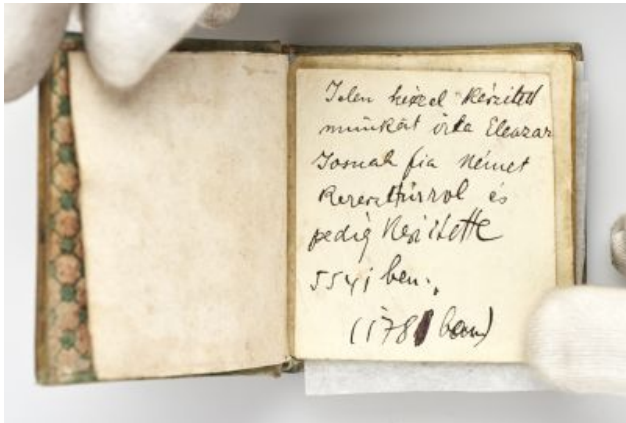 Jelen kézzel készített
munkát írta Eleazar
Josuah fia Német
Kereszturrol és
pedig Készitette
5541 ben.
(178 ban)